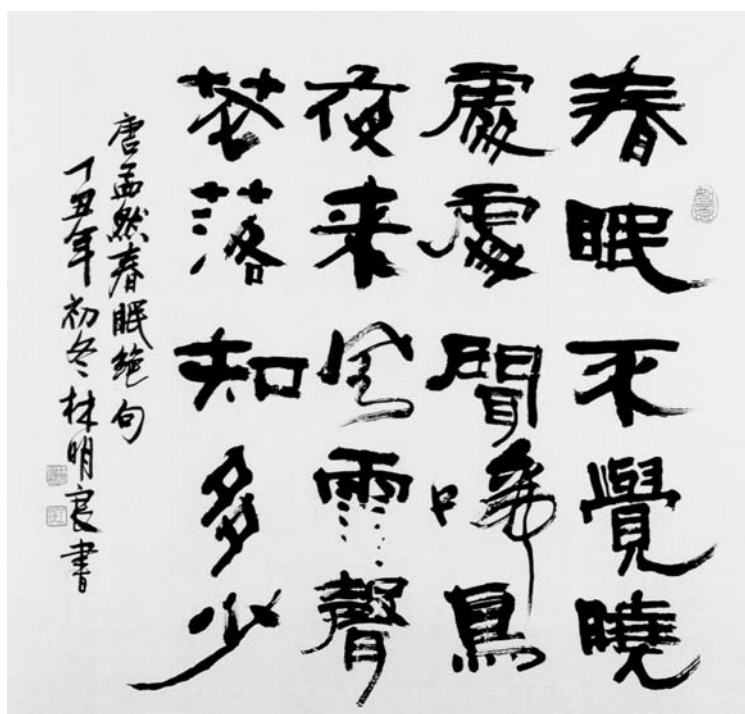 春眠不覺曉
處處聞啼鳥
夜来風雨聲
花落知多少
唐孟然春眠絶句
丁丑年初冬林明良書